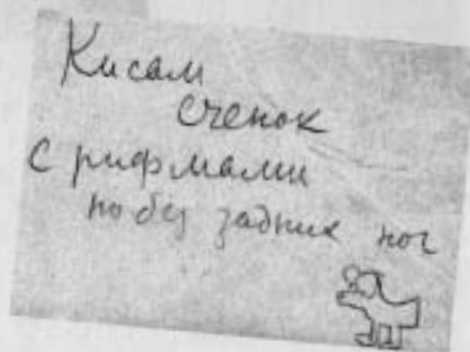 Кисам
сченок
с рифмами
но без задних ног